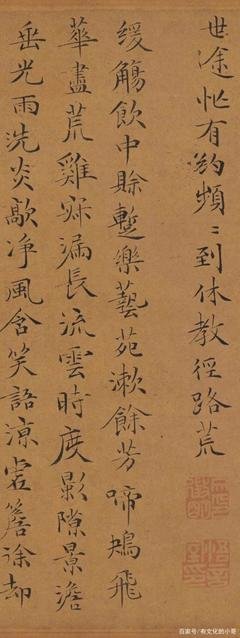 世途忙有約頻〻到休教徑路荒
緩觴飲中賒蹔樂藝苑漱餘芳啼鴂飛
華盡荒雞寐漏長流雲時度影隙景澹
垂光雨洗炎歊凈風含笑語涼虛簷涂却
百家号/有文化的小哥